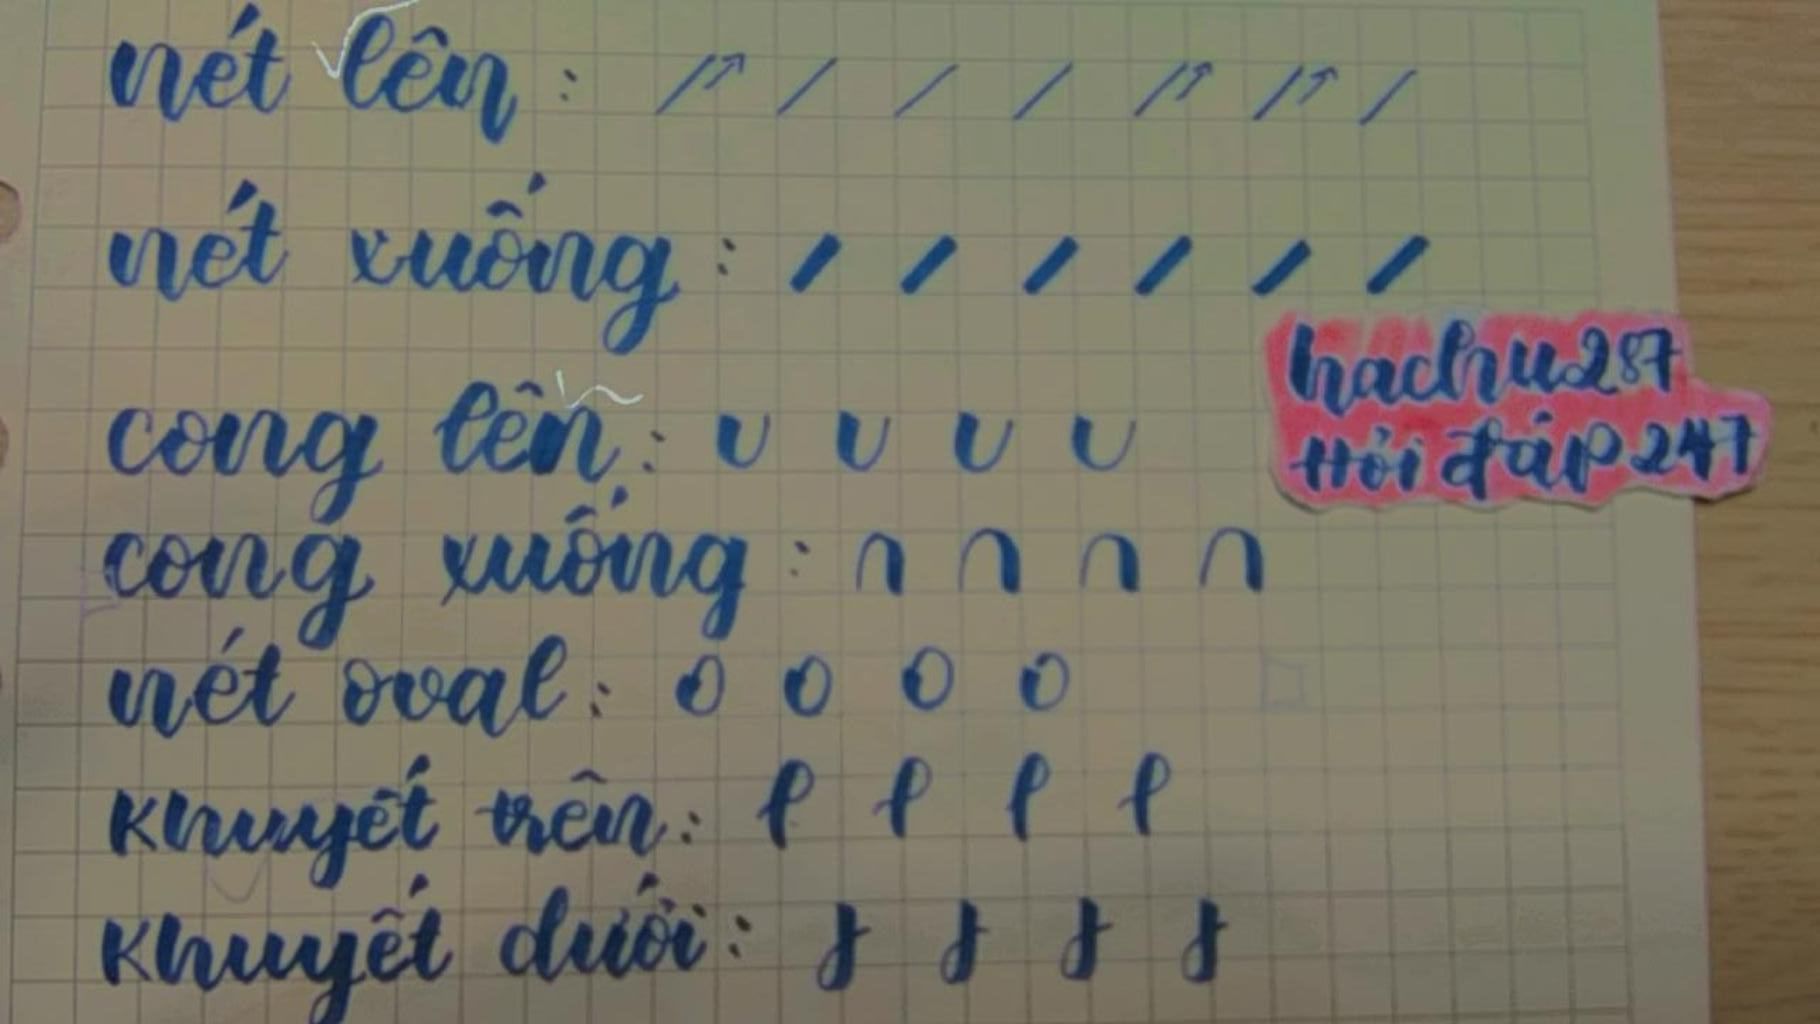 nét lên:
nét xuống:
cong lên:
cong xuống:
nét oval:
khuyết trên:
khuyết dưới:
hachu287
Hỏi đáp 247